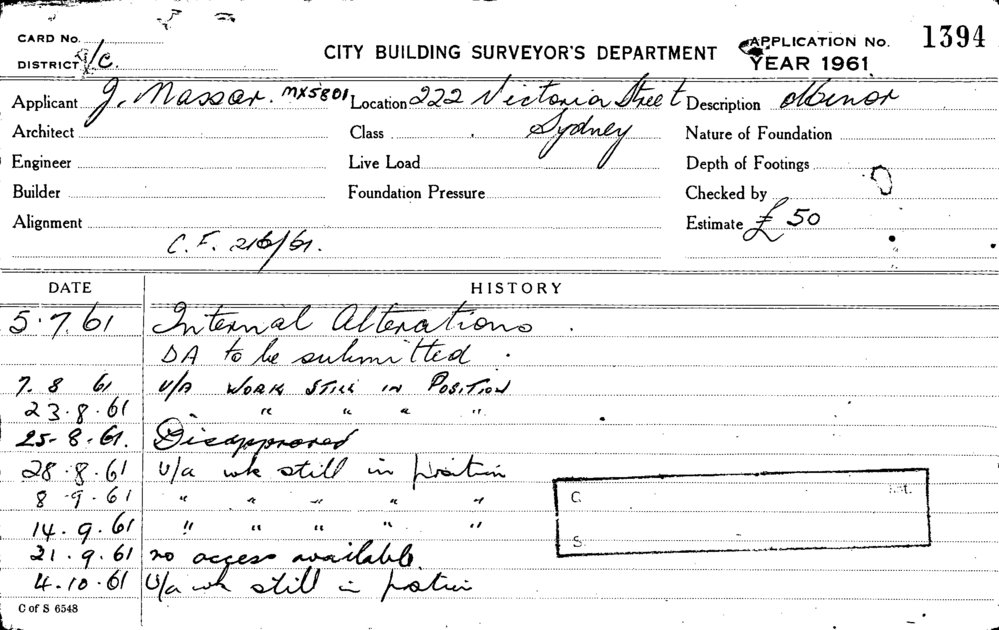 CARD No.
DISTRICT I/C.
CITY BUILDING SURVEYOR'S DEPARTMENT
APPLICATION No. 1394
YEAR 1961
Applicant J. Massar. MX5801 Location 222 Victoria Street Description Minor
Architect Class Sydney Nature of Foundation
Engineer Live Load Depth of Footings
Builder Foundation Pressure Checked by
Alignment Estimate £50
C.F. 21/6/61.
DATE HISTORY
5.7.61 Internal Alterations.
DA to be submitted.
7.8 61 U/A WORK STILL IN POSITION
23.8.61 " " " "
25-8-61. Disapproved
28.8.61 U/a wk still in position
8.9.61 " " " " "
14.9.61 " " " " "
21.9.61 no access available.
4.10.61 U/a wk still in position
C of S 6548